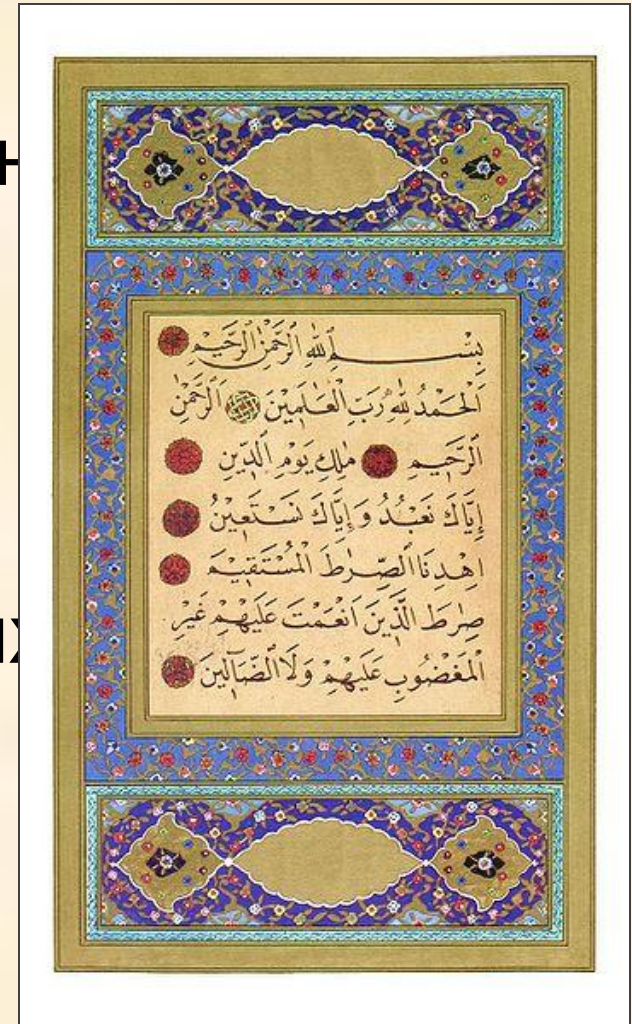 بِسْمِ اللّٰهِ الرَّحْمٰنِ الرَّحٖيمِ
اَلْحَمْدُ لِلّٰهِ رَبِّ الْعَالَمٖينَ اَلرَّحْمٰنِ
الرَّحٖيمِ مٰلِكِ يَوْمِ الدّٖينِ
اِيَّاكَ نَعْبُدُ وَ اِيَّاكَ نَسْتَعٖينُ
اِهْدِنَا الصِّرَاطَ الْمُسْتَقٖيمَ
صِرَاطَ الَّذٖينَ اَنْعَمْتَ عَلَيْهِمْ غَيْرِ
الْمَغْضُوبِ عَلَيْهِمْ وَلَا الضَّٓالّٖينَ